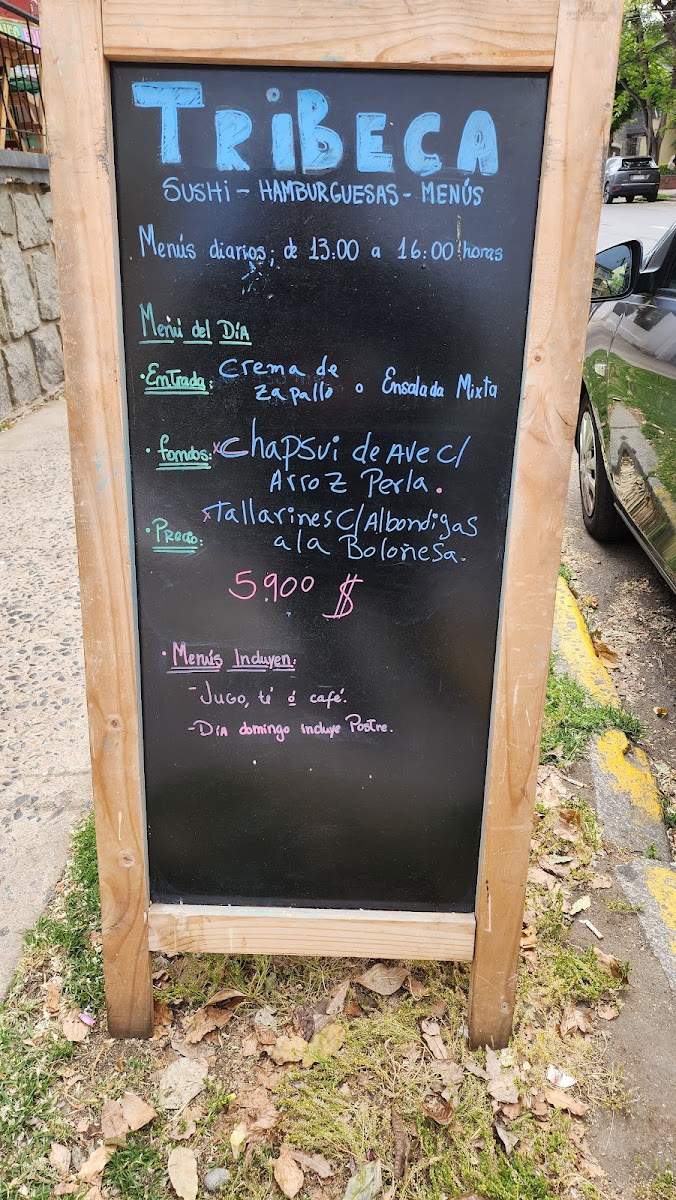 TRiBECA
SUSHi - HAMBURGUESAS - MENÚS
Menús diarios; de 13:00 a 16:00 horas
Menú del Día
• Entrada: Crema de
Zapallo o Ensalada Mixta
• fondos: x Chapsui de Ave c/
Arroz Perla.
x Tallarines c/Albondigas
a la Boloñesa.
• Precio:
5.900 $
• Menús Incluyen:
- Jugo, té ó café.
- Día domingo incluye Postre.